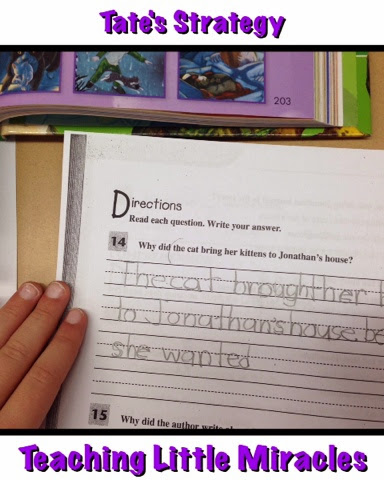 Tate's Strategy
203
Directions
Read each question. Write your answer.
14 Why did the cat bring her kittens to Jonathan's house?
The cat brought her
to Jonathan's house be
she wanted
15 Why did the author write
Teaching Little Miracles